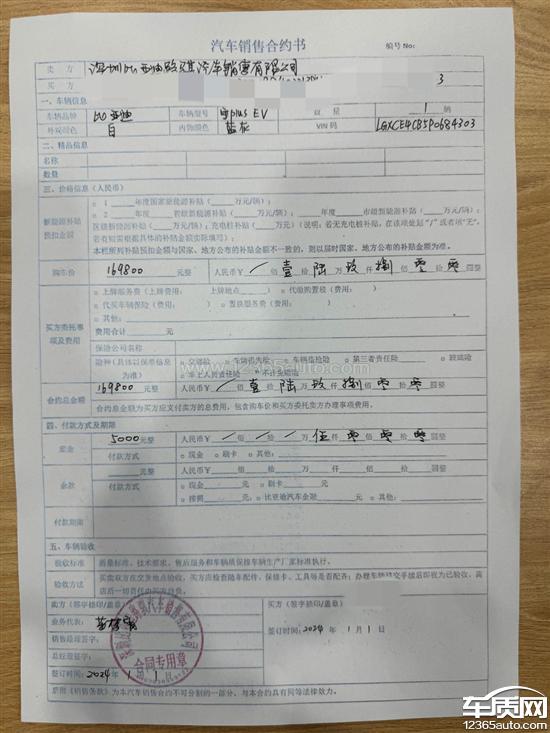 汽车销售合约书 编号No:
卖方
买方 3
一、车辆信息
车辆品牌 比亚迪 车辆型号 宋plus EV 数量 1 辆
外观颜色 白 内饰颜色 蓝灰 VIN码 LGXCE4CB5P0684303
二、精品信息
名称
数量
三、价格信息(人民币)
新能源补贴预扣金额
□ 1 ____年度国家新能源补贴(____万元/辆);
□ 2 ____年度 省级新能源补贴(____万元/辆); ____年度 市级新能源补贴(____万元/辆);
区级新能源补贴(____万元/辆);充电桩补贴(____万元/辆)(说明:若无充电桩补贴,在该项处划"/"或者填"无",
若有则需根据具体的补贴金额实际填写);
本栏所列补贴预扣金额与国家、地方公布的补贴金额不一致的,则以届时国家、地方公布的补贴金额为准。
购车价 169800 元整 人民币¥ / 佰 壹 拾 陆 万 玖 仟 捌 佰 零 拾 零 圆整
买方委托事项及费用
□ 上牌服务费(上牌费用: 上牌地点 ) □ 代缴购置税(费用: )
□ 代买车辆保险(费用: ) □ 置换服务费(费用: )
□ 其他:
费用合计: 元
保险公司名称:
险种(具体以保单信息为准) □ 交强险 □ 车辆损失险 □ 车辆盗抢险 □ 第三者责任险 □ 玻璃险
□ 车上人员责任险 □ 不计免赔险
www.12365auto.com
合约总金额 169800 元整 人民币¥ / 佰 壹 拾 陆 万 玖 仟 捌 佰 零 拾 零 圆整
合约总金额为买方应支付卖方的总费用,包含购车价和买方委托卖方办理事项费用。
四、付款方式及期限
定金 5000 元整 人民币¥ / 佰 / 拾 / 万 伍 仟 零 佰 零 拾 零 圆整
付款方式 □ 现金 □ 刷卡 □ 其他:
余款 元整 人民币¥ 佰 拾 万 仟 佰 拾 圆整
付款方式 □ 现金 元 □ 刷卡 元
□ 按揭 元 □ 比亚迪汽车金融 元 □ 其他: 元
付款期限
五、车辆验收
验收标准 质量标准、技术要求、售后服务和车辆质保按车辆生产厂家标准执行。
验收方法 买卖双方在交货地点验收,买方应检查随车配件、保修卡、工具等是否配齐;办理车辆移交手续后即视为已验收,离店后一切责任由买方自负。
卖方(签字捺印/盖章) 买方(签字捺印/盖章)
业务代表:
销售经理签字:
总经理签字:
签订时间:2024年 1月 1日
签订时间:2024年 1月 1日
合同专用章
后附《销售条款》为本汽车销售合约不可分割的一部分,与本合约具有同等法律效力。
车质网
12365auto.com